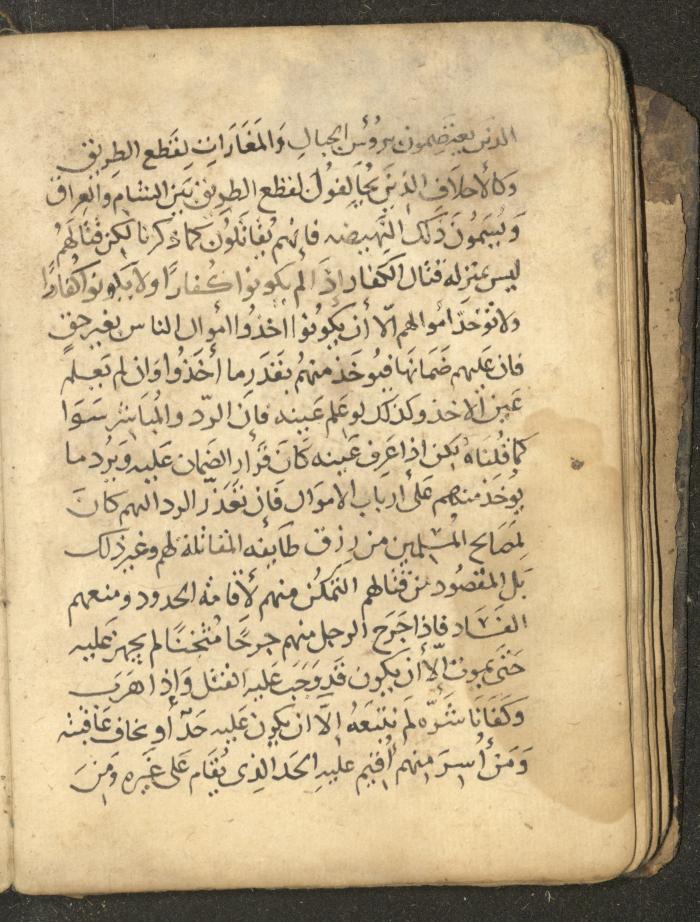 الذين يعتصمون برؤس الجبال والمَغَارَاتِ لِقَطع الطريق
وكالأحلاف الذين تحالفوا لقطع الطريق بَين الشام والعراق
وَيُسَمونَ ذَلك النَّهِيضه فإنهم يُقَاتَلُون كما ذكرنا لكن قتالهُم
ليس بمنزلة قتال الكفار إذَا لم يكونوا كُفارًا ولا يَكونوا كفارًا
ولا تؤخذ أموالهم الّا أن يكُونُوا أخذُوا أموال الناس بغير حق
فان عَليهم ضَمَانها فيُوخَذ منهُم بقَدَر ما أَخَذُوا وَان لم تعلم
عَين الاخذ وكذلك لو عَلم عَينه فإن الرّد والمُبَاشر سَوَا
كما قُلنَاهُ لكن اذا عَرف عَينه كَانَ قرار الضمان عَليه وَيَرد ما
يوخَذ منهم عَلى أرباب الاموَال فَان تعَذّر الرد اليهم كانَ
لمصَالح المُسلمين من رزق طايفه المقاتلة لهم وغير ذلك
بَل المقصُود من قتالهم التمكُن منهم لأقامة الحدود ومنعهم
الفسَاد فاذا جَرَح الرجل منهم جرحًا مُثخنًا لم يجهز عَليه
حتى يموت الّا أن يكون قَد وَجَب عليه القتل وَإِذا هَرَب
وكَفَانَا شَرّه لَم نتبَعهُ إلّا ان يكون عَليه حَدّ أو نخاف عَاقبته
وَمَن أُسِرَ منهم أقيم عليهِ الحَد الذِى يُقَام عَلى غَيره وَمِنَ